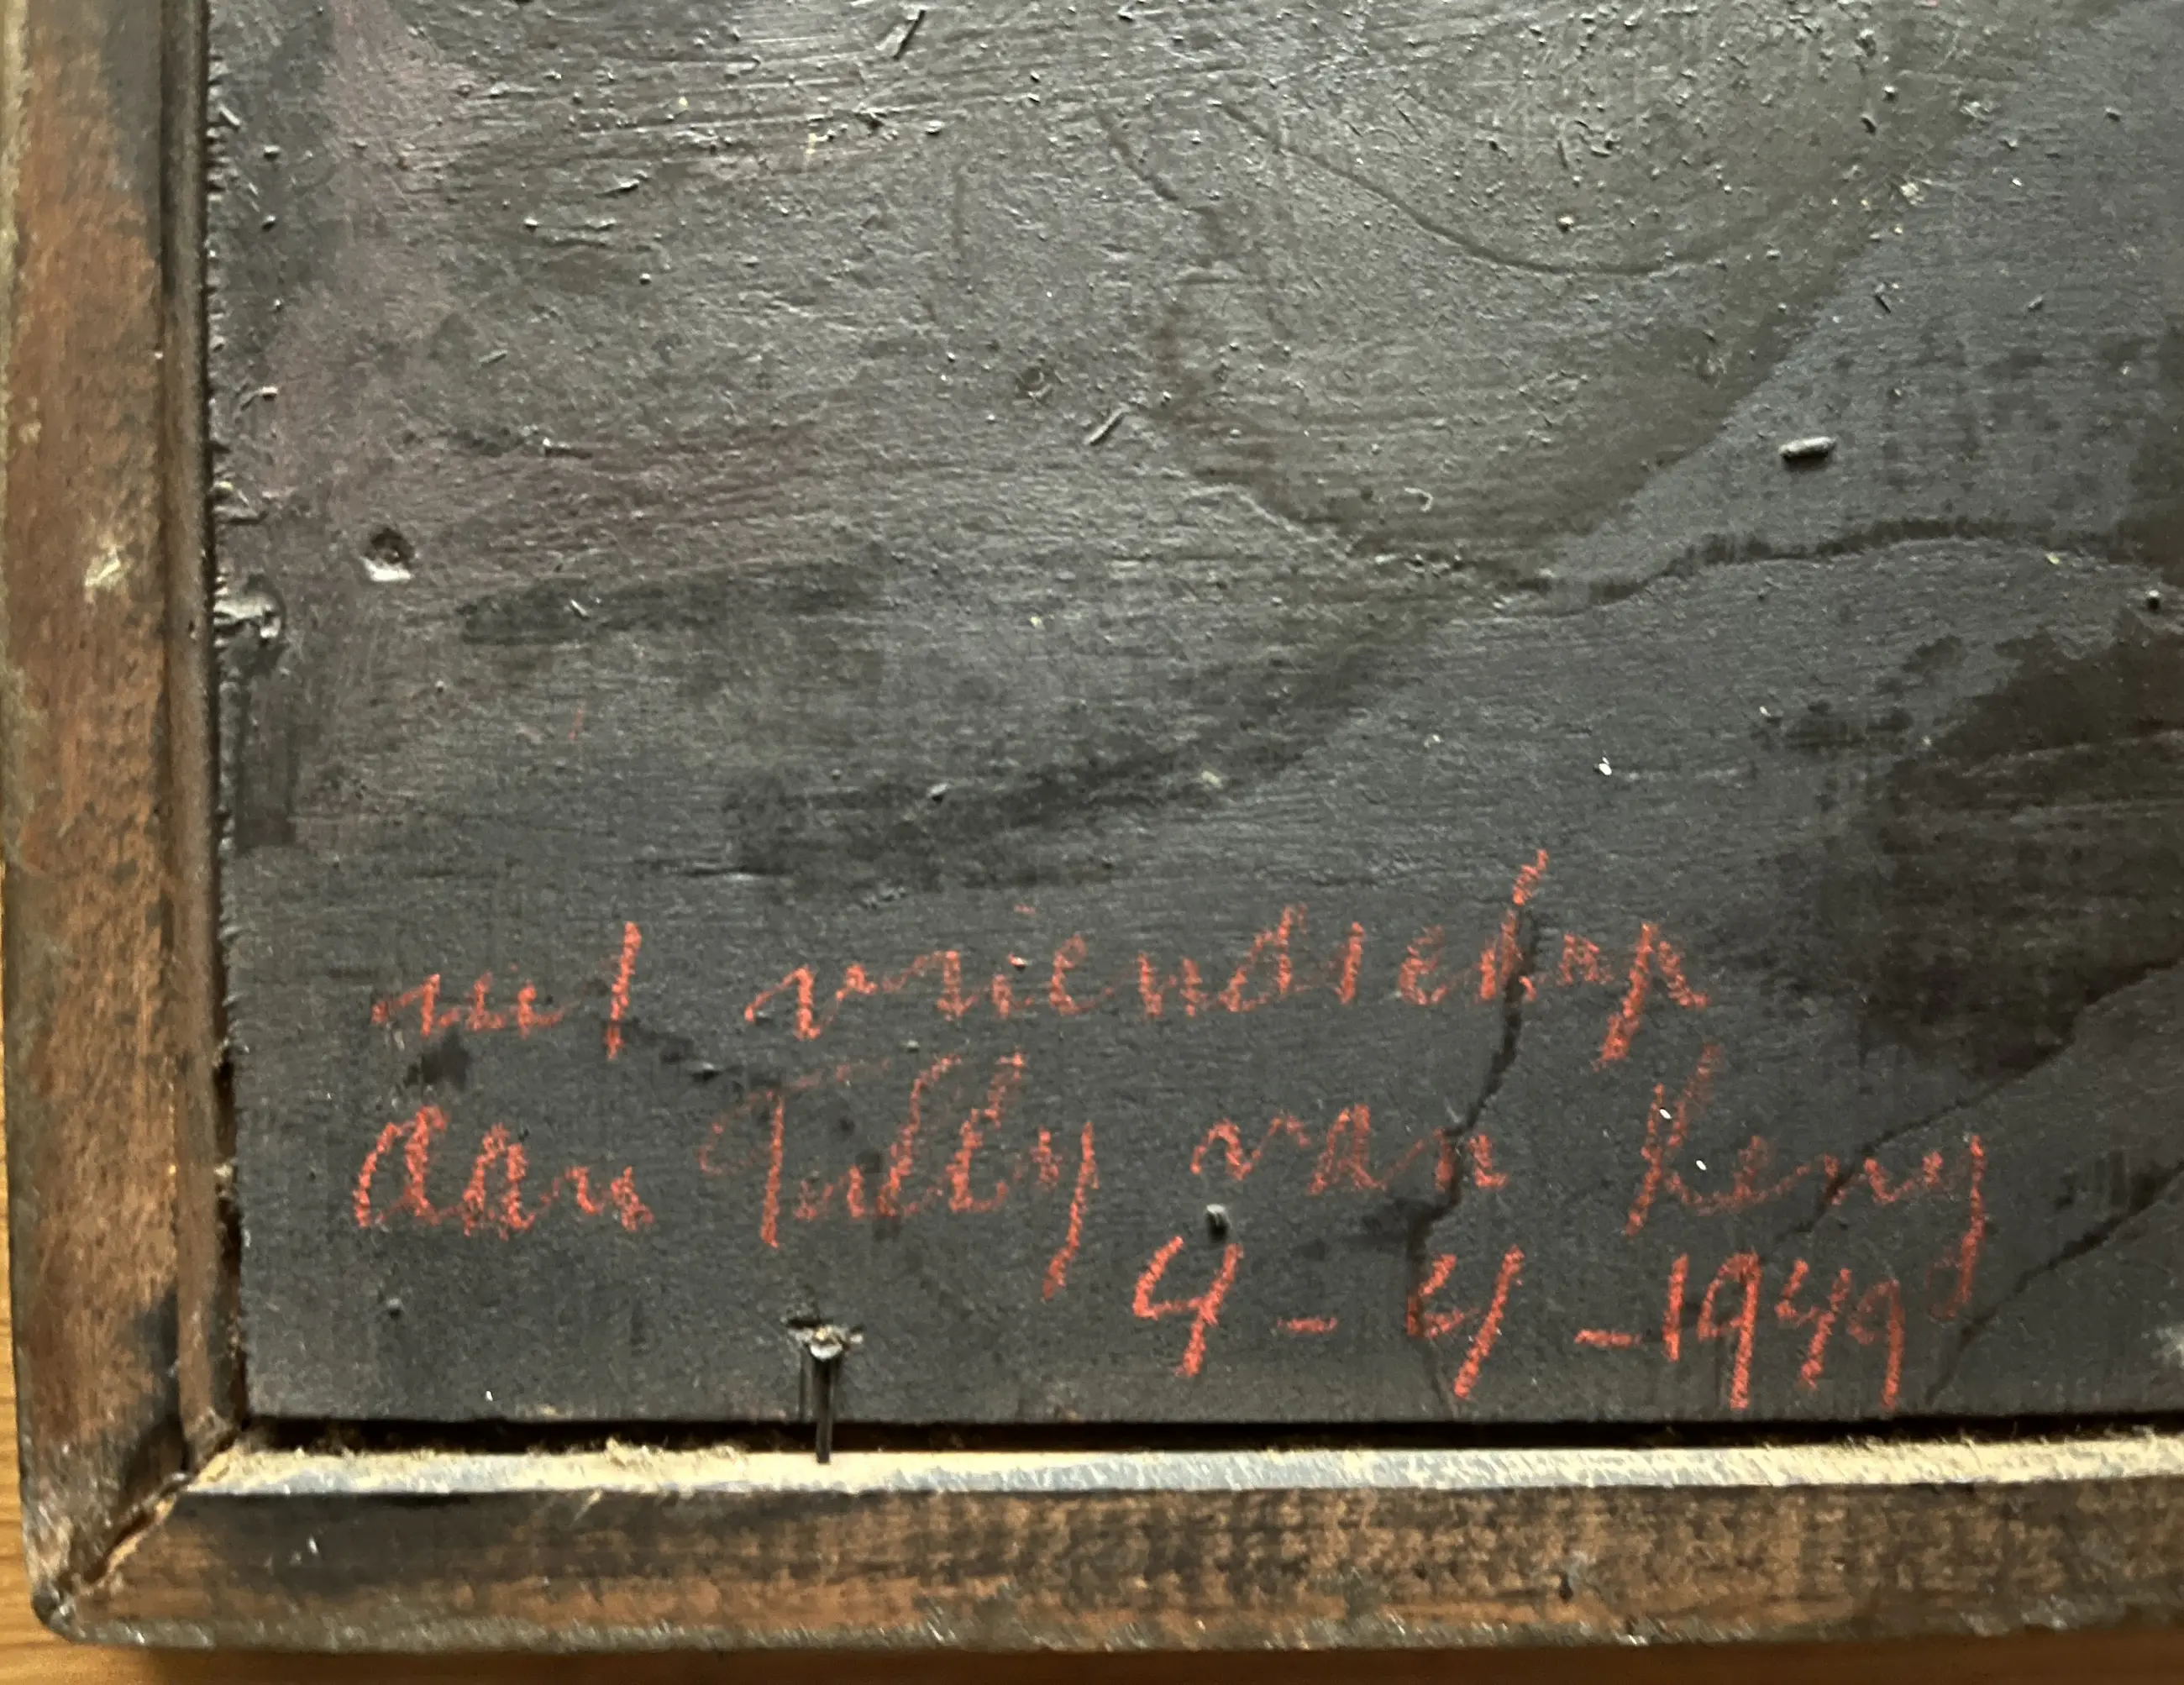 met vriendschap
aan Tully van Reny
4-4-1949